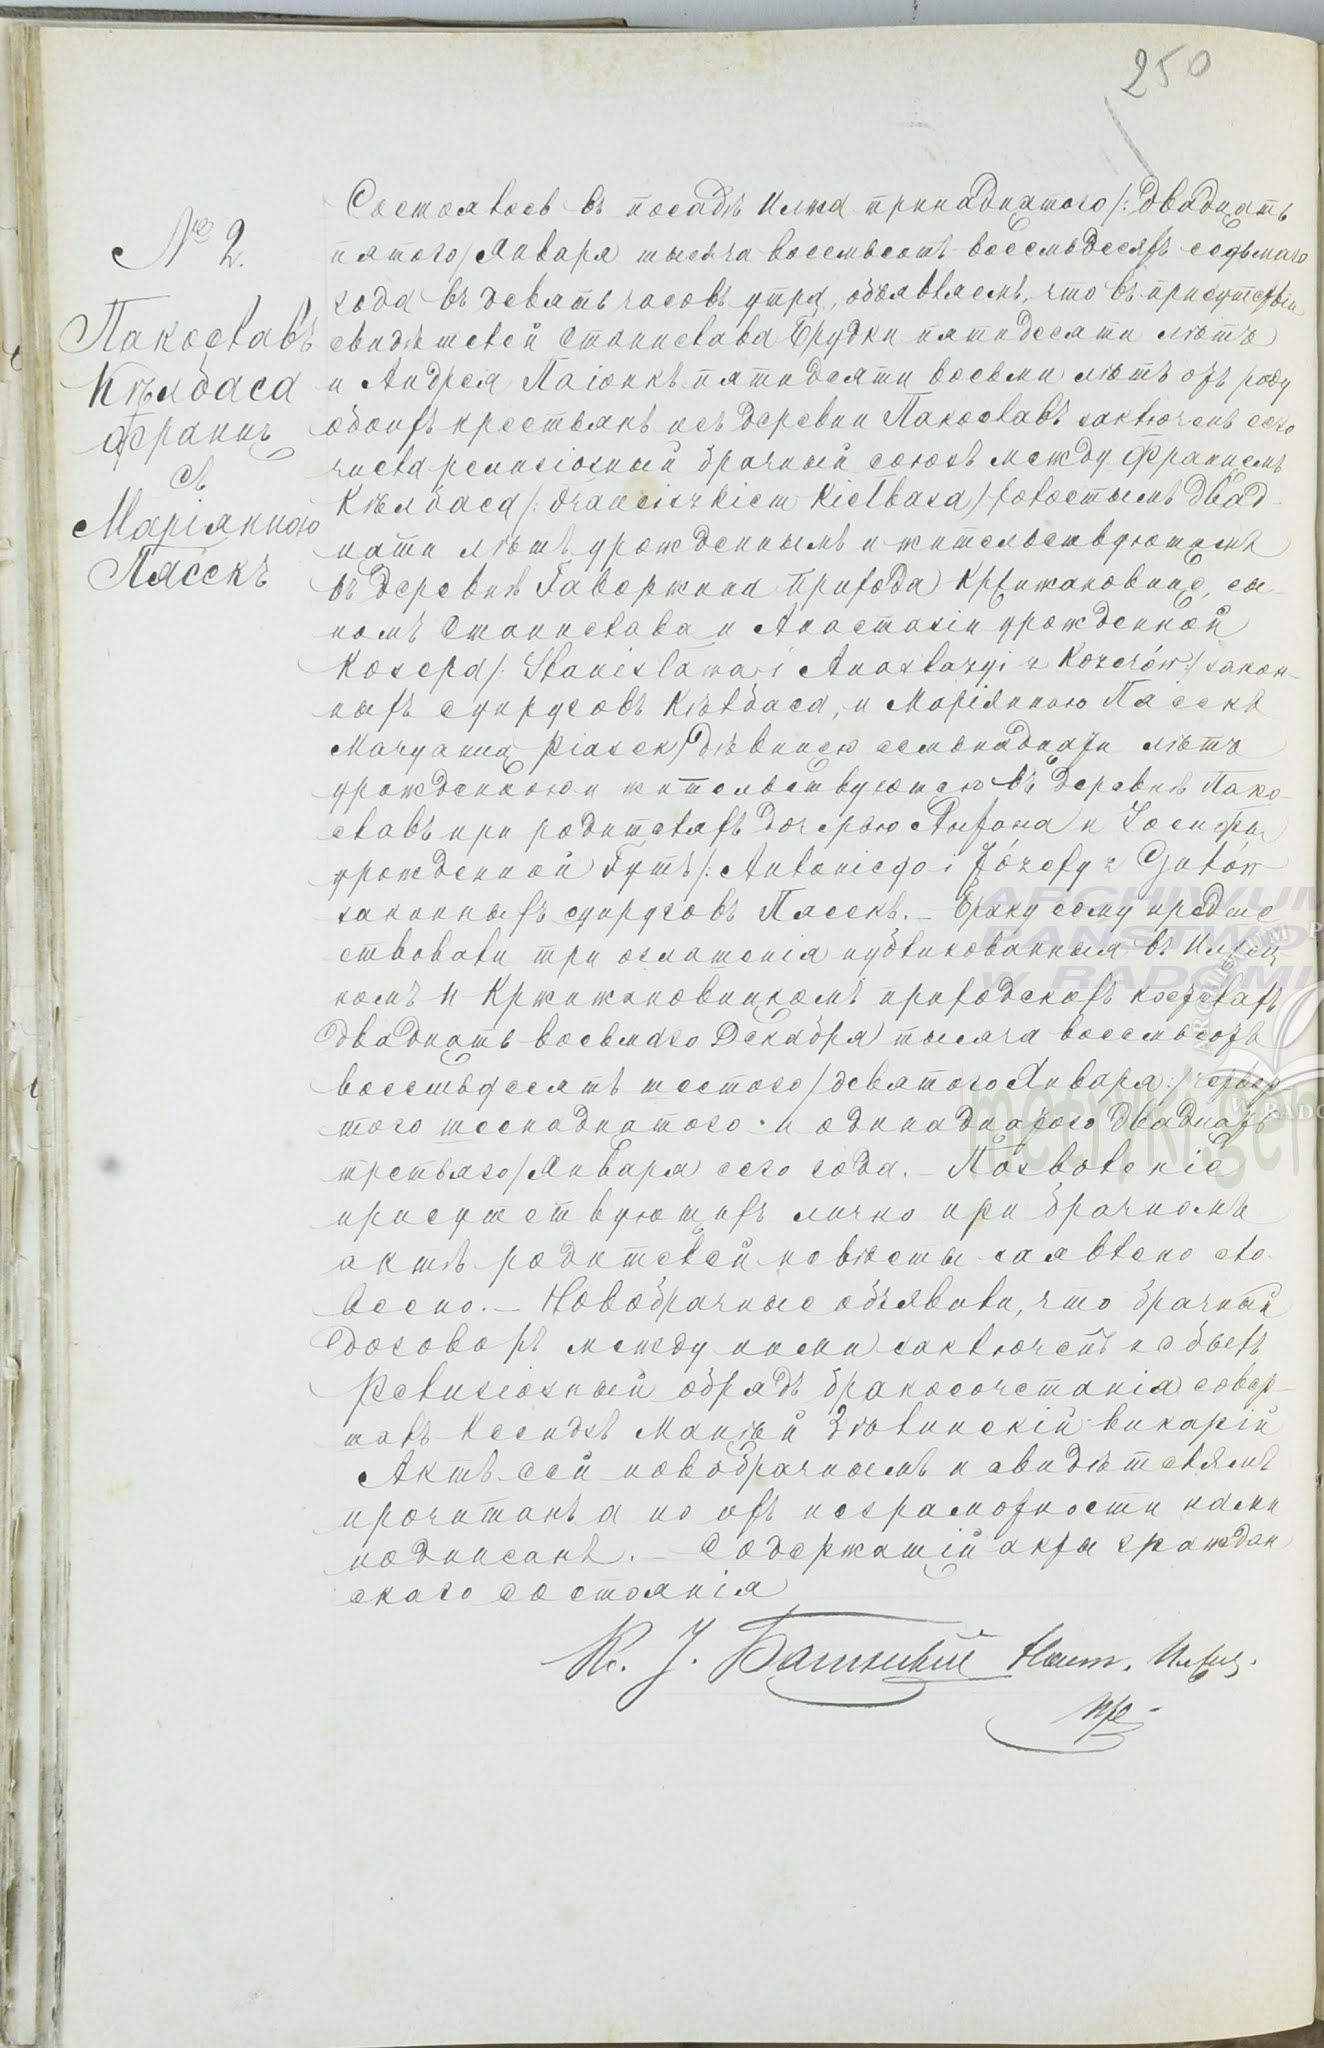 250
№ 2.
Пакославъ
Кѣлбаса
Францъ
съ
Маріянною
Пясекъ
Состоялось въ посадѣ Илжа тринадцатого /: двадцать
пятого / Января тысяча восемьсотъ восемьдесятъ седьмаго
года въ девять часовъ утра, объявляемъ, что въ присутствіи
свидѣтелей Станислава Брудки пятидесяти лѣтъ
и Андрея Паіонкъ пятидесяти восьми лѣтъ отъ роду
обоихъ крестьянъ изъ деревни Пакославъ заключенъ сего
числа религіозный брачный союзъ между Францемъ
Кѣлбаса /: Franciszkiem Kiełbasa / холостымъ двад-
цати лѣтъ урожденнымъ и жительствующимъ
въ деревнѣ Гаворжина Прихода Кржижановице, сы-
номъ Станислава и Анастазіи урожденной
Козера /: Stanisława i Anastazyi z Kozerów / закон-
ныхъ супруговъ Кѣлбаса, и Маріянною Пясекъ
Maryanna Piasek / дѣвицею семьнадцати лѣтъ
урожденною и жительствующею въ деревнѣ Пако-
славъ при родителяхъ дочерью Антона и Іосифы
урожденной Гутъ /: Antoniego i Józefy z Gutów
законныхъ супруговъ Пясекъ. — Браку сему предше
ствовали три оглашенія публикованныя въ Илжец
комъ и Кржижановицкомъ приходскихъ костелахъ
двадцать восьмаго Декабря тысяча восемьсотъ
восемьдесятъ шестого / девятого Января :/ четвер
того шеснадцатого и одинадцатого двадцать
третьяго / Января сего года. — Позволеніе
присутствующихъ лично при брачномъ
актѣ родителей невѣсты заявлено сло-
весно. — Новобрачные объявили, что брачный
договоръ между ними заключенъ не былъ
Религіозный обрядъ бракосочетанія совер-
шалъ Ксендзъ Матѣй викарій
Актъ сей новобрачнымъ и свидѣтелямъ
прочитанъ а по ихъ неграмотности нами
подписанъ. — Содержащій акты граждан
скаго состоянія
К. І. Наст. Илжец.
ARCHIWUM
PAŃSTWO
W RADOMI
metryki.gen